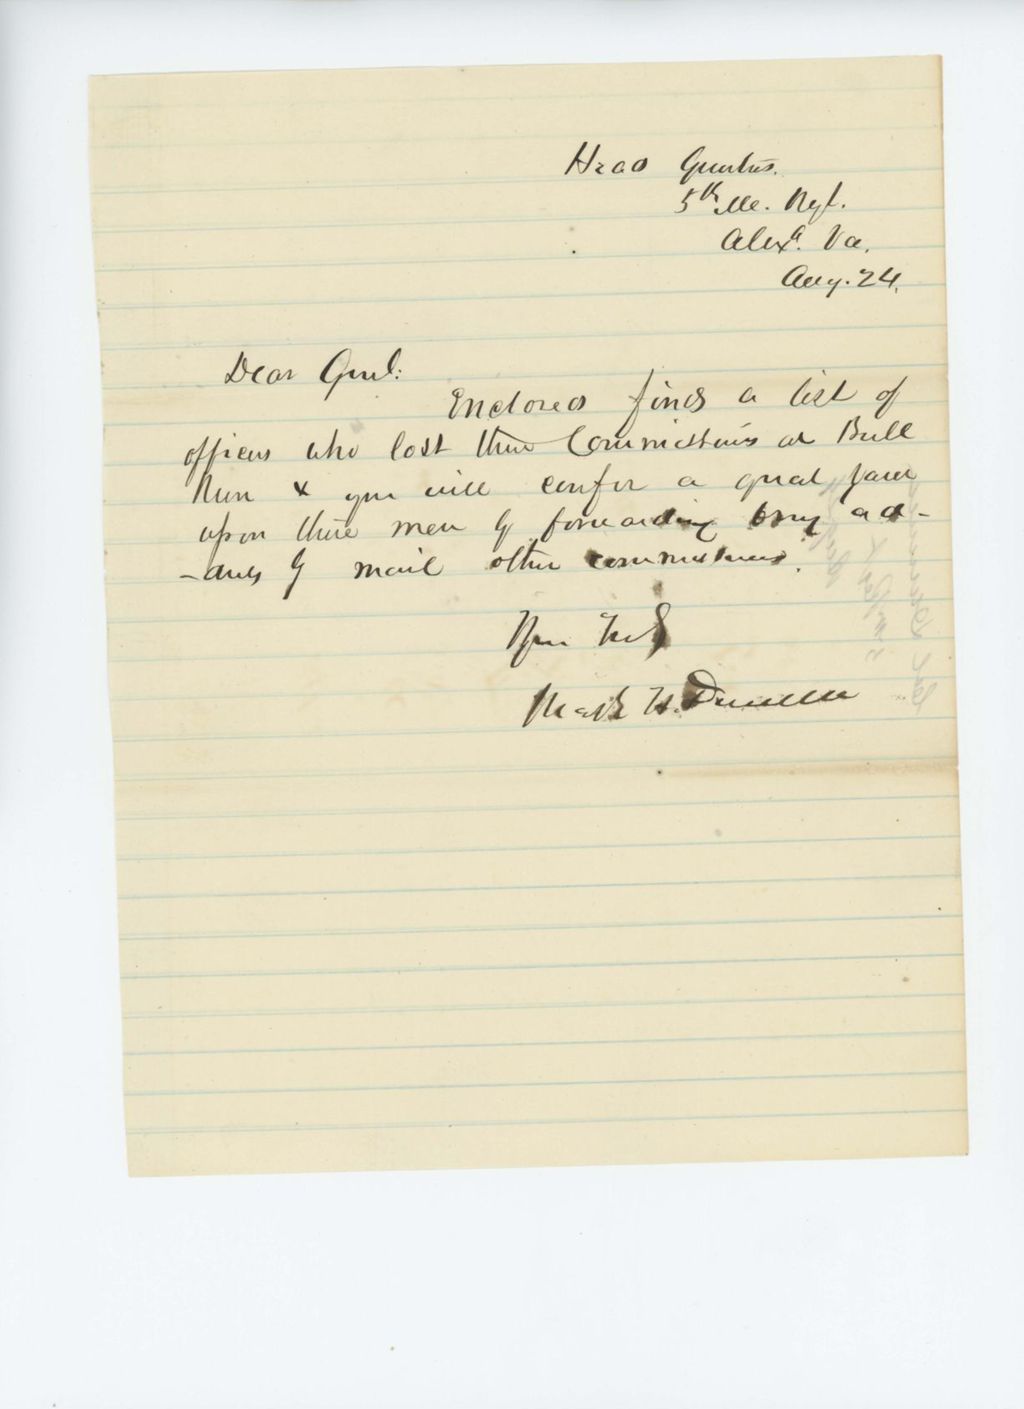 Head Quarters.
5th Me. Regt.
Alexa. Va.
Aug. 24.
Dear Genl:
Enclosed find a list of
officers who lost their Commissions at Bull
Run & you will confer a great favor
upon these men by forwarding to my ad-
-dress by mail other commissions.
Yrs Truly
Mark H. Dunnell